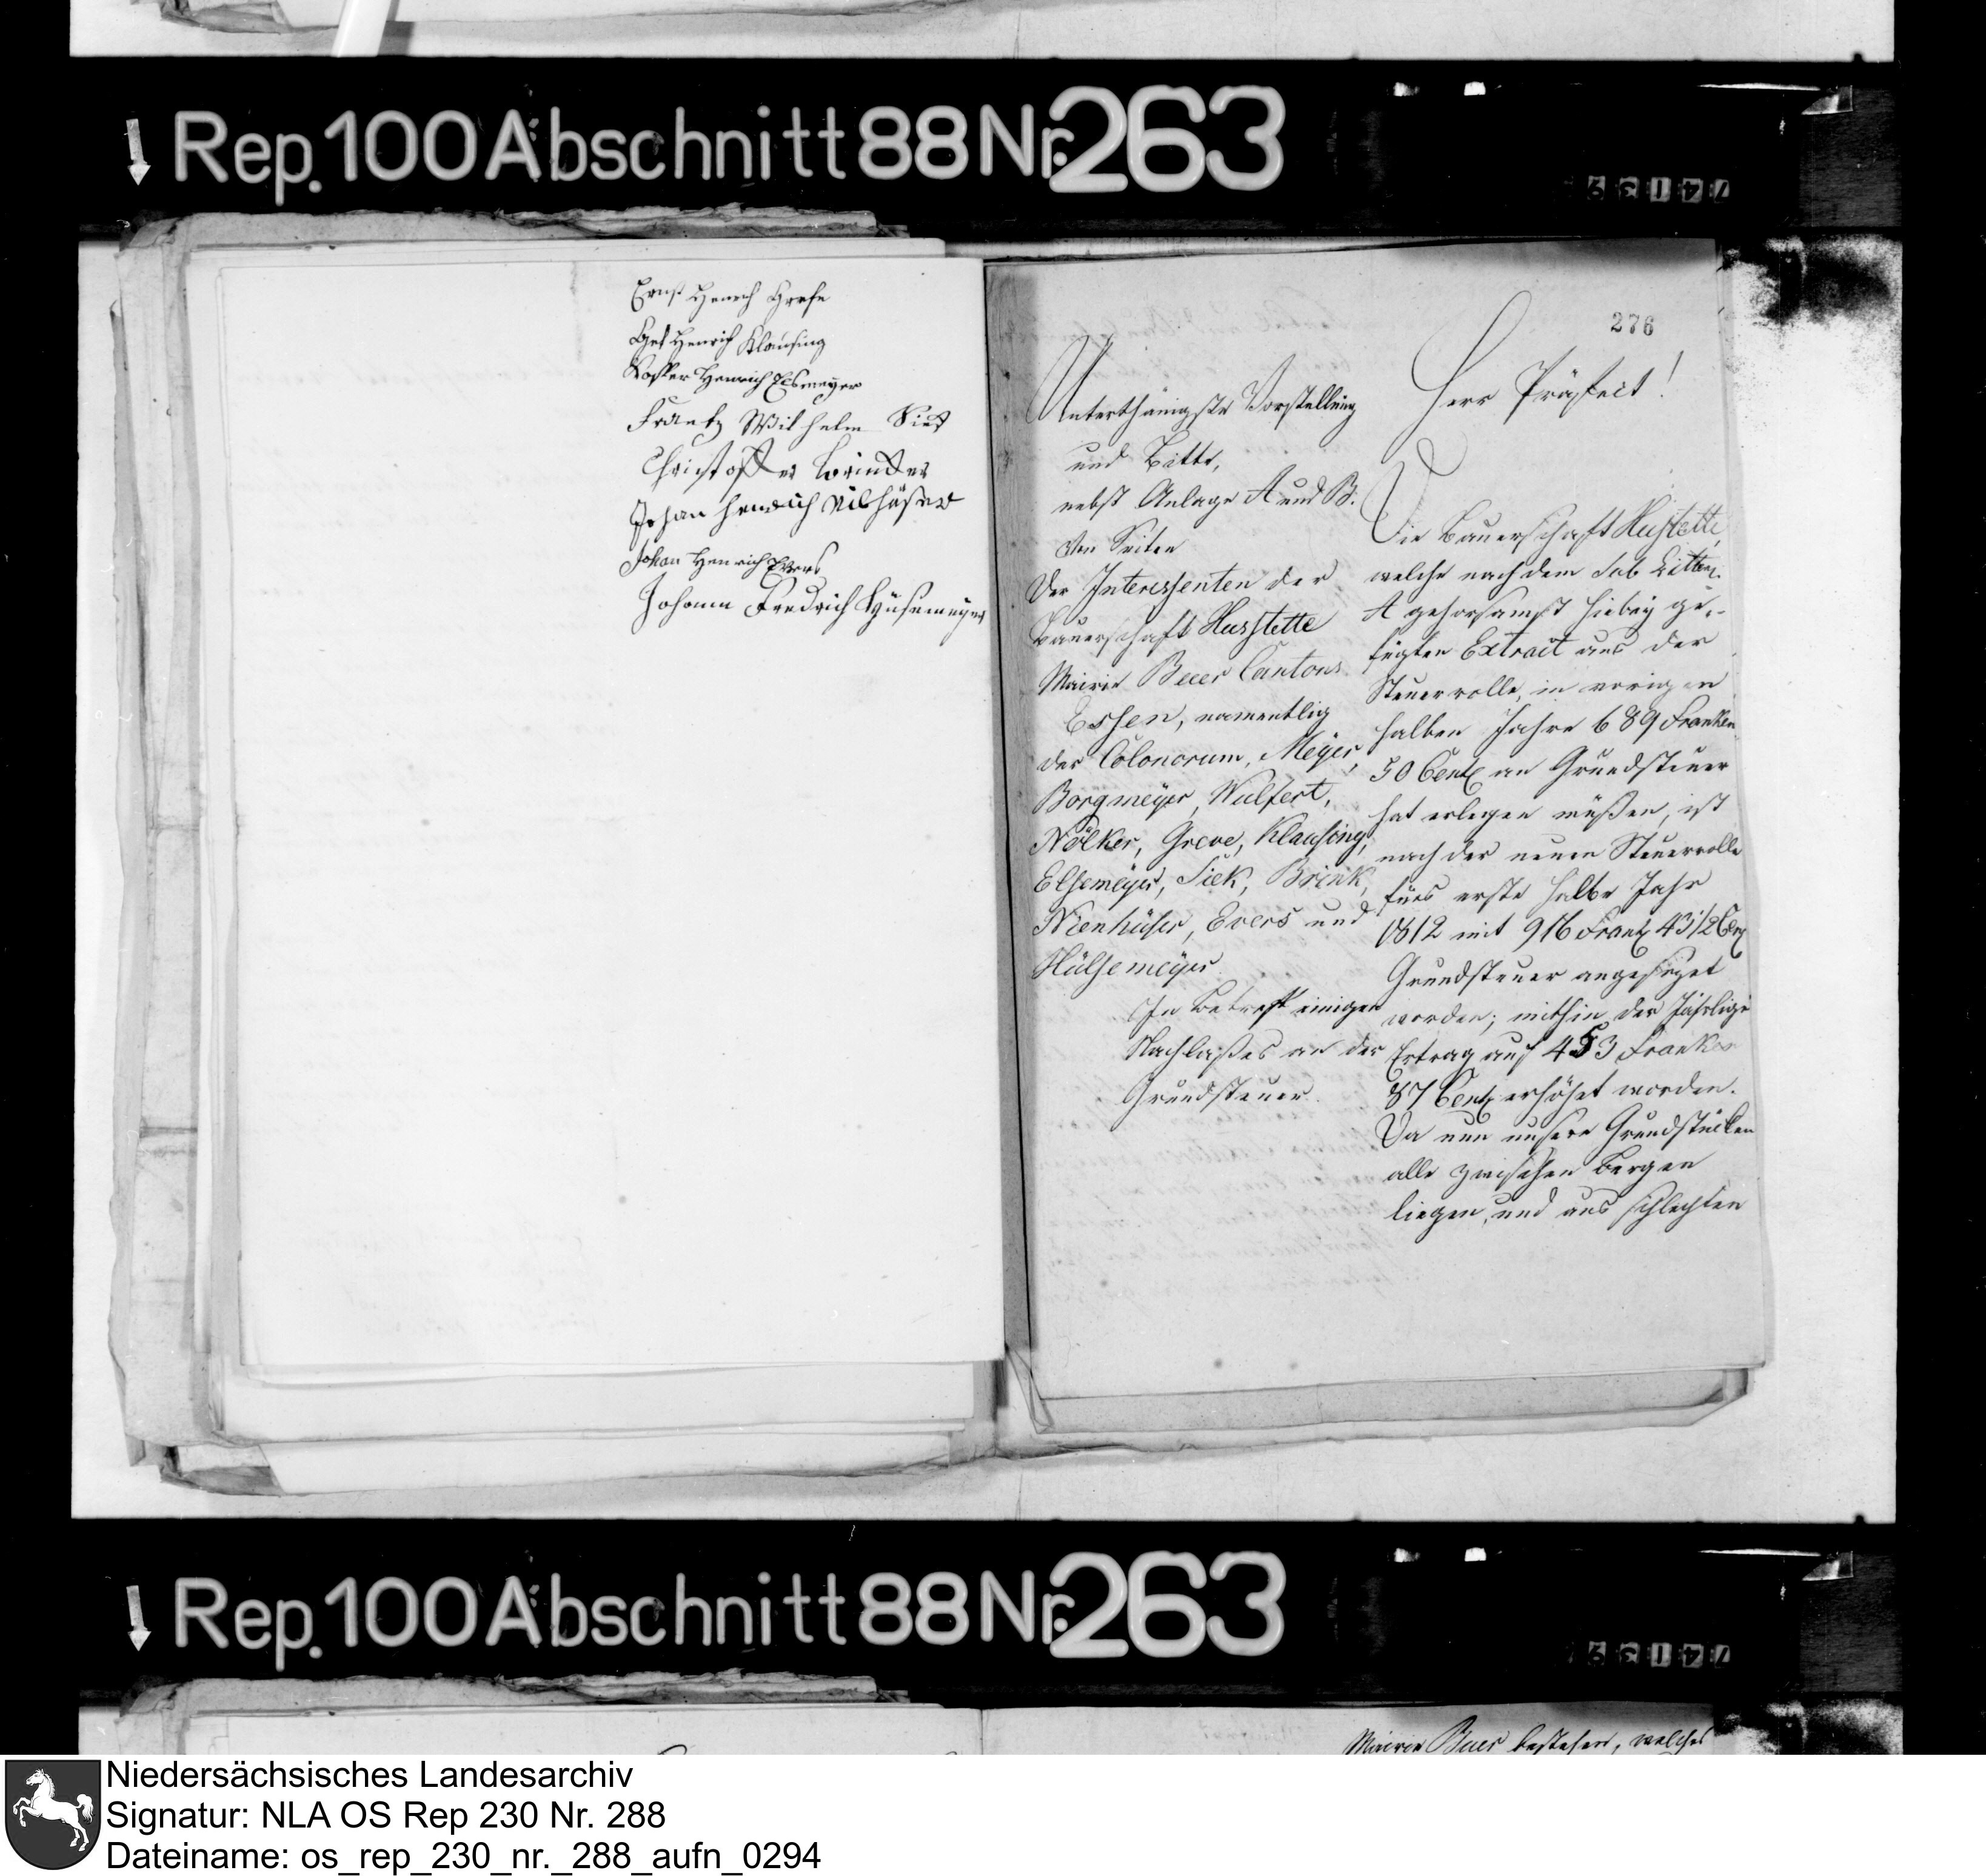 Rep. 100 Abschnitt 88 Nr. 263
74139
Ernst Henrich Grefe
Gert Henrich Klausing
Henrich Elsmeyer
Frantz Wilhelm Siek
Christoffer Brincker
Johan Hendrich Nihüser
Johan Henrich Evers
Johann Fredrich Hüsemeyer
276
Unterthänigste Vorstellung
und Bitte,
nebst Anlage A und B.
Von Seiten
Der Interessenten der
Bauerschaft Husstette
Mairie Buer Cantons
Essen, namentlig
der Colonorum, Meyer,
Borgmeyer, Wulfert,
Nölker, Greve, Klausing,
Elsemeyer, Siek, Brink,
Nienhüser, Evers und
Hülsemeyer.
In Betreff einigen
Nachlaßes an der
Grundsteuer.
Herr Präfect!
Die Bauerschaft Hustette,
welche nach dem sub Litten.
A gehorsamst hiebey ge-
fügten Extract aus der
Steuerrolle, in vorigen
halben Jahre 689 Franken
50 Cent an Grundsteuer
hat erlegen müßen, ist
nach der neuen Steuerrolle
fürs erste halbe Jahr
1812 mit 916 Frank 43 1/2 Cent
Grundsteuer angesezet
worden; mithin der Jährlige
Ertrag auf 453 Franken
87 Cent erhöhet worden.
Da nun unsere Grundstücken
alle zwischen Bergen
liegen, und aus schlechten
Rep. 100 Abschnitt 88 Nr. 263
74139
Mairie Buer bestehen, welches
Niedersächsisches Landesarchiv
Signatur: NLA OS Rep 230 Nr. 288
Dateiname: os_rep_230_nr._288_aufn_0294